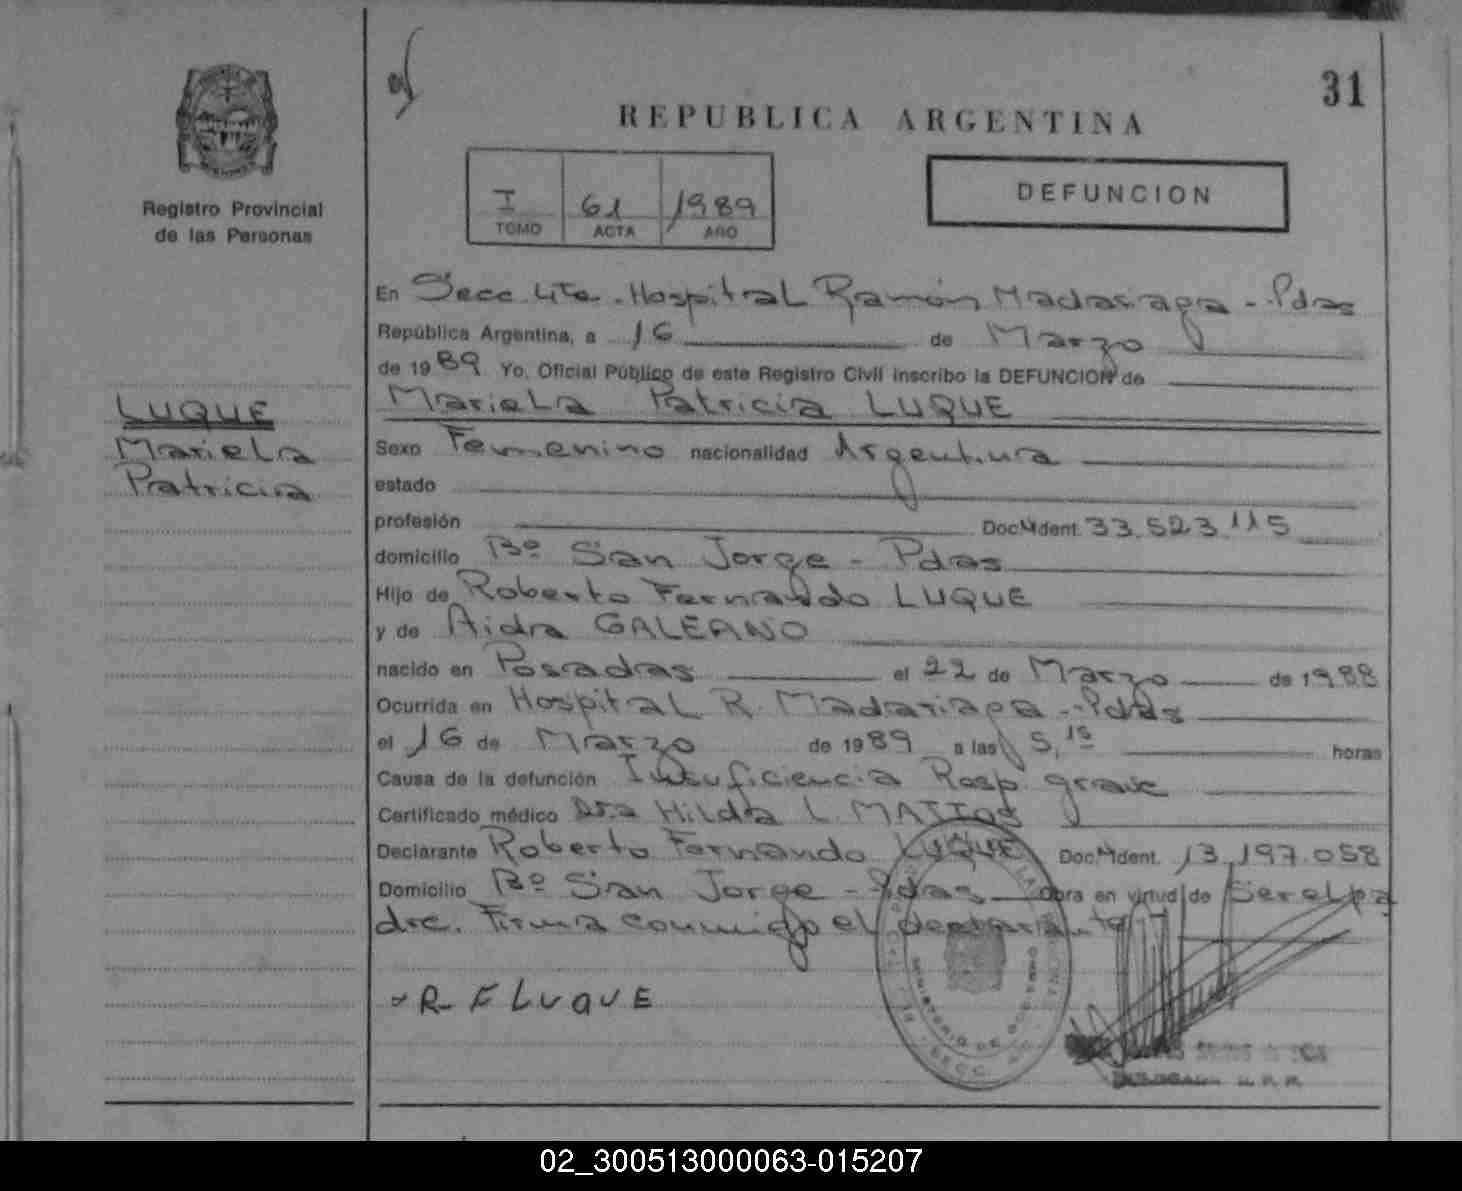 31
REPUBLICA ARGENTINA
Registro Provincial
de las Personas
I 61 1989
TOMO ACTA AÑO
DEFUNCION
En Secc. 4ta. Hospital Ramón Madariaga - Pdas
República Argentina, a 16 de Marzo
de 1989 Yo, Oficial Público de este Registro Civil inscribo la DEFUNCION de
LUQUE
Mariela
Patricia
Mariela Patricia LUQUE
Sexo Femenino nacionalidad Argentina
estado
profesión Doc. Ident. 33.523.115
domicilio Bº San Jorge - Pdas
Hijo de Roberto Fernando LUQUE
y de Aida GALEANO
nacido en Posadas el 22 de Marzo de 1988
Ocurrida en Hospital R. Madariaga - Pdas
el 16 de Marzo de 1989 a las 5,15 horas
Causa de la defunción Insuficiencia Resp. grave
Certificado médico Dra Hilda L. MATTOS
Declarante Roberto Fernando LUQUE Doc. Ident. 13.197.058
Domicilio Bº San Jorge - Pdas obra en virtud de Ser el pa
dre. Firma conmigo el declarante
R F LUQUE
MINISTERIO DE GOBIERNO
02_300513000063-015207